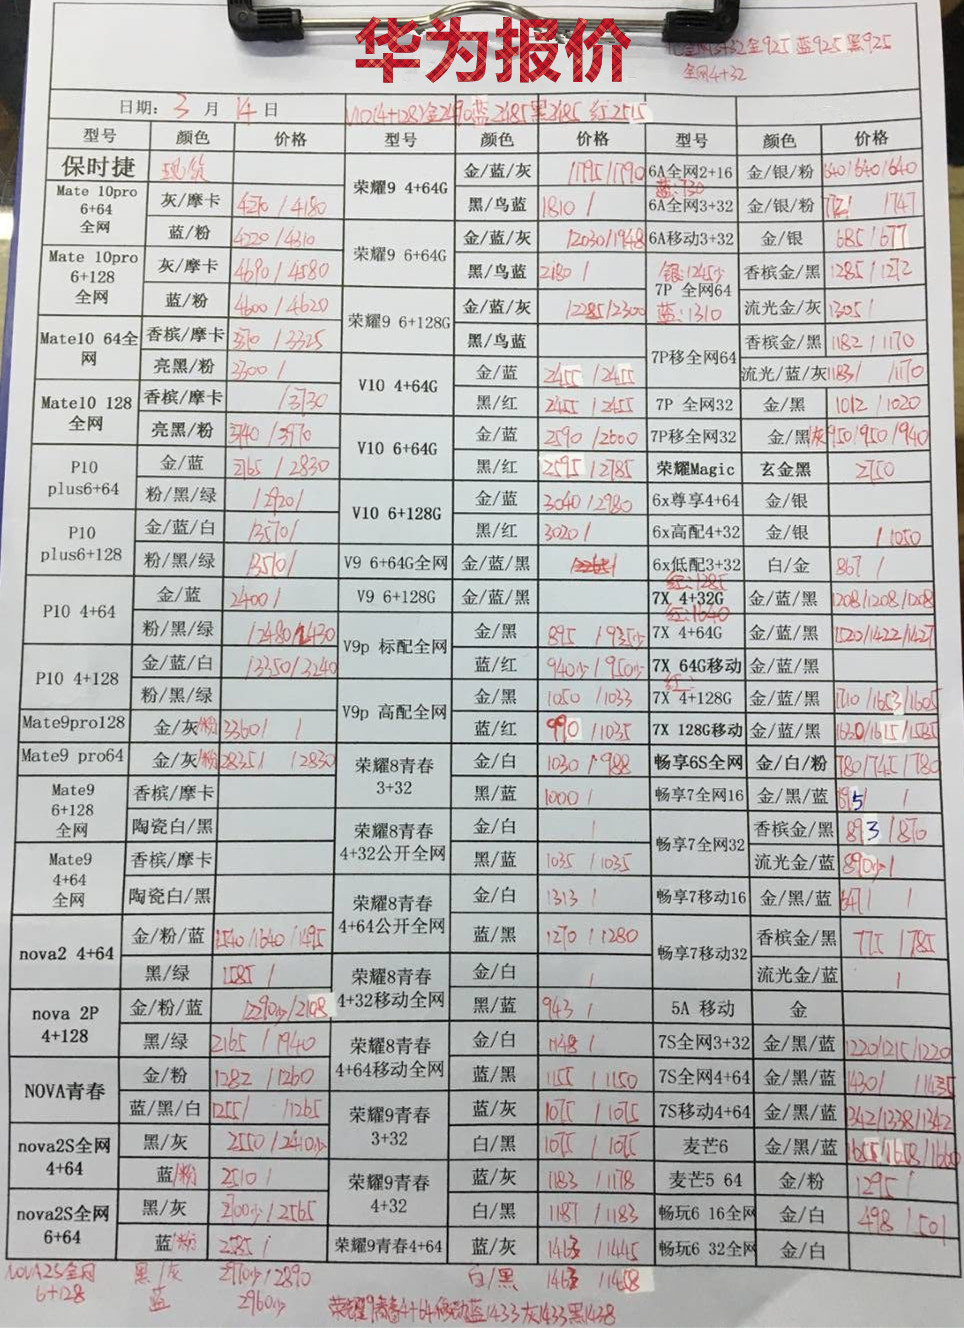 华为报价
全网3+32金925 蓝925 黑925
全网4+32
日期：3月14日 V10(4+128)金2490蓝2485黑2485 红2515
型号 颜色 价格 型号 颜色 价格 型号 颜色 价格
保时捷 现货
Mate 10pro 6+64 全网 灰/摩卡 4270/4180
蓝/粉 4220/4310
Mate 10pro 6+128 全网 灰/摩卡 4690/4580
蓝/粉 4600/4620
Mate10 64全网 香槟/摩卡 /3325
亮黑/粉
Mate10 128 全网 香槟/摩卡 /3730
亮黑/粉
P10 plus6+64 金/蓝 /2830
粉/黑/绿
P10 plus6+128 金/蓝/白
粉/黑/绿
P10 4+64 金/蓝 2400/
粉/黑/绿
P10 4+128 金/蓝/白
粉/黑/绿
Mate9pro128 金/灰/粉 3360/ /
Mate9 pro64 金/灰/粉 2835/ /2830
Mate9 6+128 全网 香槟/摩卡
陶瓷白/黑
Mate9 4+64 全网 香槟/摩卡
陶瓷白/黑
nova2 4+64 金/粉/蓝
黑/绿 1585/
nova 2P 4+128 金/粉/蓝
黑/绿 2165/1940
NOVA青春 金/粉 1282/1260
蓝/黑/白 1255/ /1265
nova2S全网 4+64 黑/灰 2550/2410少
蓝/粉 2510/
nova2S全网 6+64 黑/灰 2700少/2565
蓝/粉 2585/
荣耀9 4+64G 金/蓝/灰 1795/1790
黑/鸟蓝 1810/
荣耀9 6+64G 金/蓝/灰 /2030/1948
黑/鸟蓝 2180/
荣耀9 6+128G 金/蓝/灰 /2285/2300
黑/鸟蓝
V10 4+64G 金/蓝 2455/2455
黑/红 2455/2455
V10 6+64G 金/蓝 2590/2600
黑/红 2595/2785
V10 6+128G 金/蓝 3040/2980
黑/红 3020/
V9 6+64G全网 金/蓝/黑
V9 6+128G 金/蓝/黑
V9p 标配全网 金/黑 895/935少
蓝/红 940少/950少
V9p 高配全网 金/黑 1050/1033
蓝/红 990/1035
荣耀8青春 3+32 金/白 1030/988
黑/蓝 1000/
荣耀8青春 4+32公开全网 金/白 /
黑/蓝 1035/1035
荣耀8青春 4+64公开全网 金/白 1313/
蓝/黑 1270/1280
荣耀8青春 4+32移动全网 金/白 /
黑/蓝 943/
荣耀8青春 4+64移动全网 金/白 1148/
蓝/黑 1155/1150
荣耀9青春 3+32 蓝/灰 1075/1075
白/黑 1075/1075
荣耀9青春 4+32 蓝/灰 1183/1178
白/黑 1187/1183
荣耀9青春4+64 蓝/灰 /1445
6A全网2+16 金/银/粉 640/640/640
蓝:730
6A全网3+32 金/银/粉 /747
6A移动3+32 金/银 685/677
银:1245少
7P 全网64 香槟金/黑 1285/1272
蓝:1310
流光金/灰 1305/
7P移全网64 香槟金/黑 1182/1170
流光/蓝/灰 1183/ /1170
7P 全网32 金/黑 1012/1020
7P移全网32 金/黑/灰 950/950/940
荣耀Magic 玄金黑 2750
6x尊享4+64 金/银
6x高配4+32 金/银 /1050
6x低配3+32 白/金 867/
红:1285
7X 4+32G 金/蓝/黑 1208/1208/1208
红:1640
7X 4+64G 金/蓝/黑 1520/1422/1427
7X 64G移动 金/蓝/黑
红:
7X 4+128G 金/蓝/黑 1710/1653/1605
7X 128G移动 金/蓝/黑 1630/1615/1585
畅享6S全网 金/白/粉 780/745/780
畅享7全网16 金/黑/蓝
畅享7全网32 香槟金/黑 893/870
流光金/蓝 890少/
畅享7移动16 金/黑/蓝
畅享7移动32 香槟金/黑 775/785
流光金/蓝 /
5A 移动 金
7S全网3+32 金/黑/蓝 1220/1215/1220
7S全网4+64 金/黑/蓝 1430/ /1435
7S移动4+64 金/黑/蓝 1342/1338/1342
麦芒6 金/黑/蓝 1655/1658/1660
麦芒5 64 金/粉 1295/
畅玩6 16全网 金/白 498/501
畅玩6 32全网 金/白
NOVA2S全网 6+128 黑/灰 2970少/2890 白/黑 /1458
蓝 2960少 荣耀9青春4+64移动蓝1433灰1433黑1438